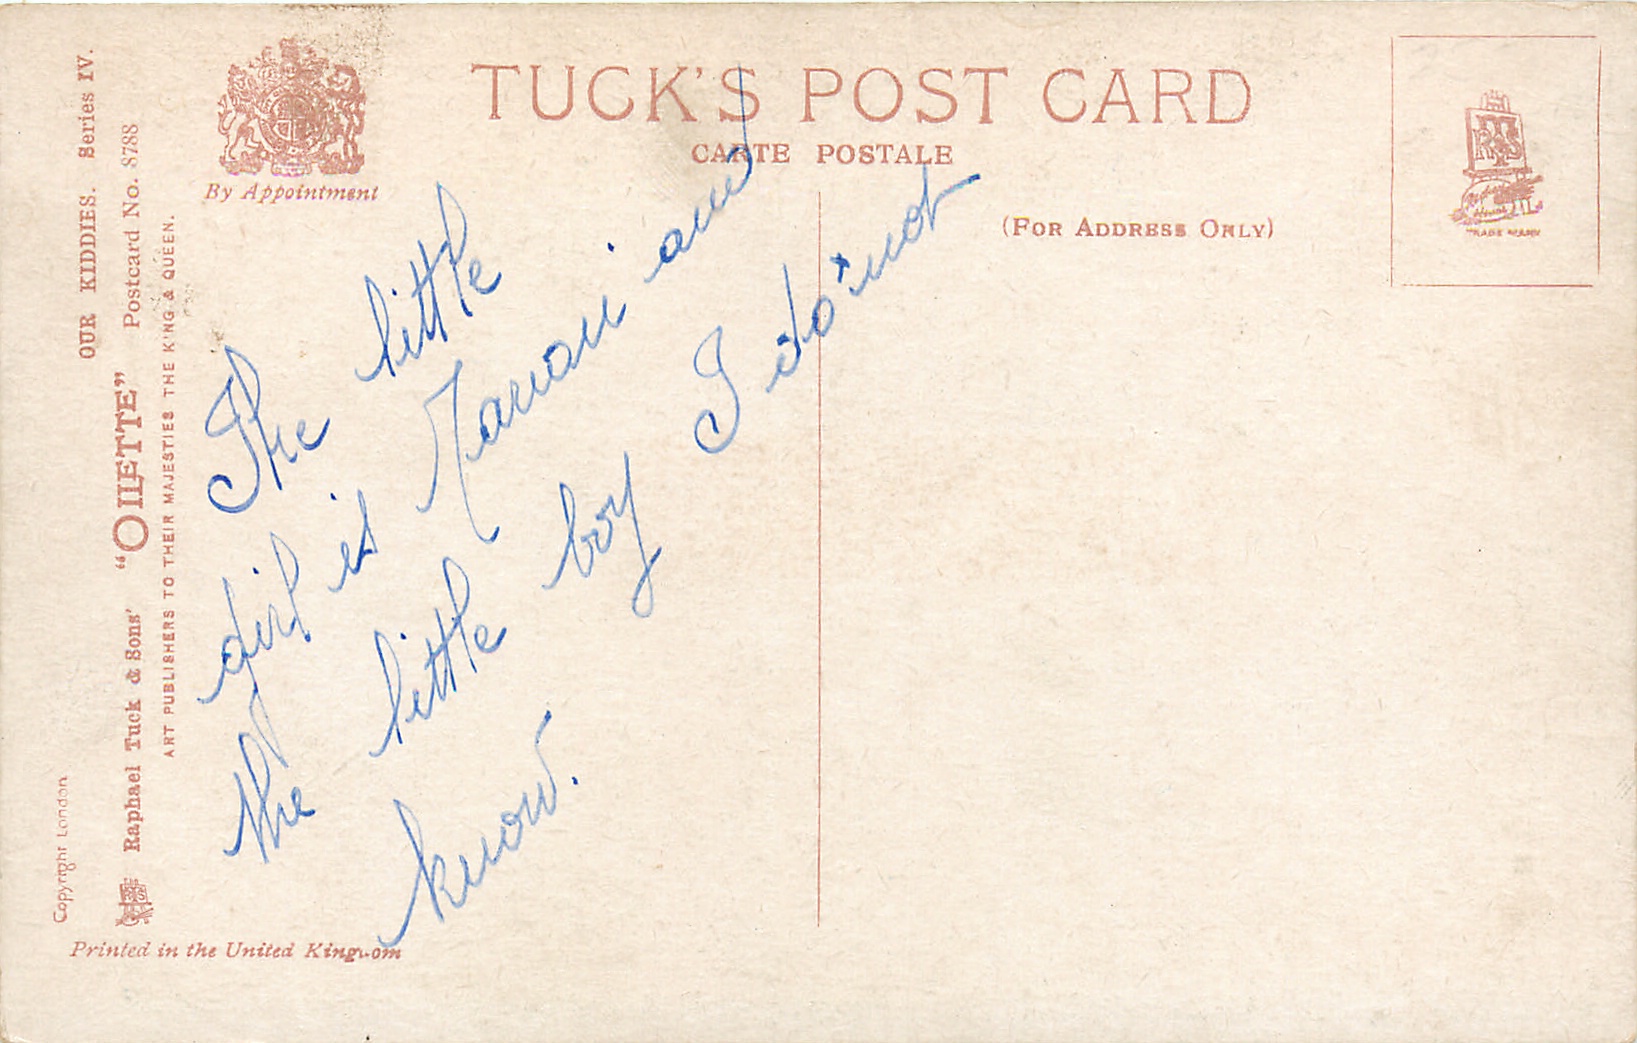 TUCK'S POST CARD
CARTE POSTALE
(FOR ADDRESS ONLY)
By Appointment
OUR KIDDIES. Series IV.
Postcard No. 8788
Raphael Tuck & Sons' "OILETTE"
ART PUBLISHERS TO THEIR MAJESTIES THE KING & QUEEN.
Copyright London
Printed in the United Kingdom
TRADE MARK
The little
girl is Marion and
the little boy I do not
know.